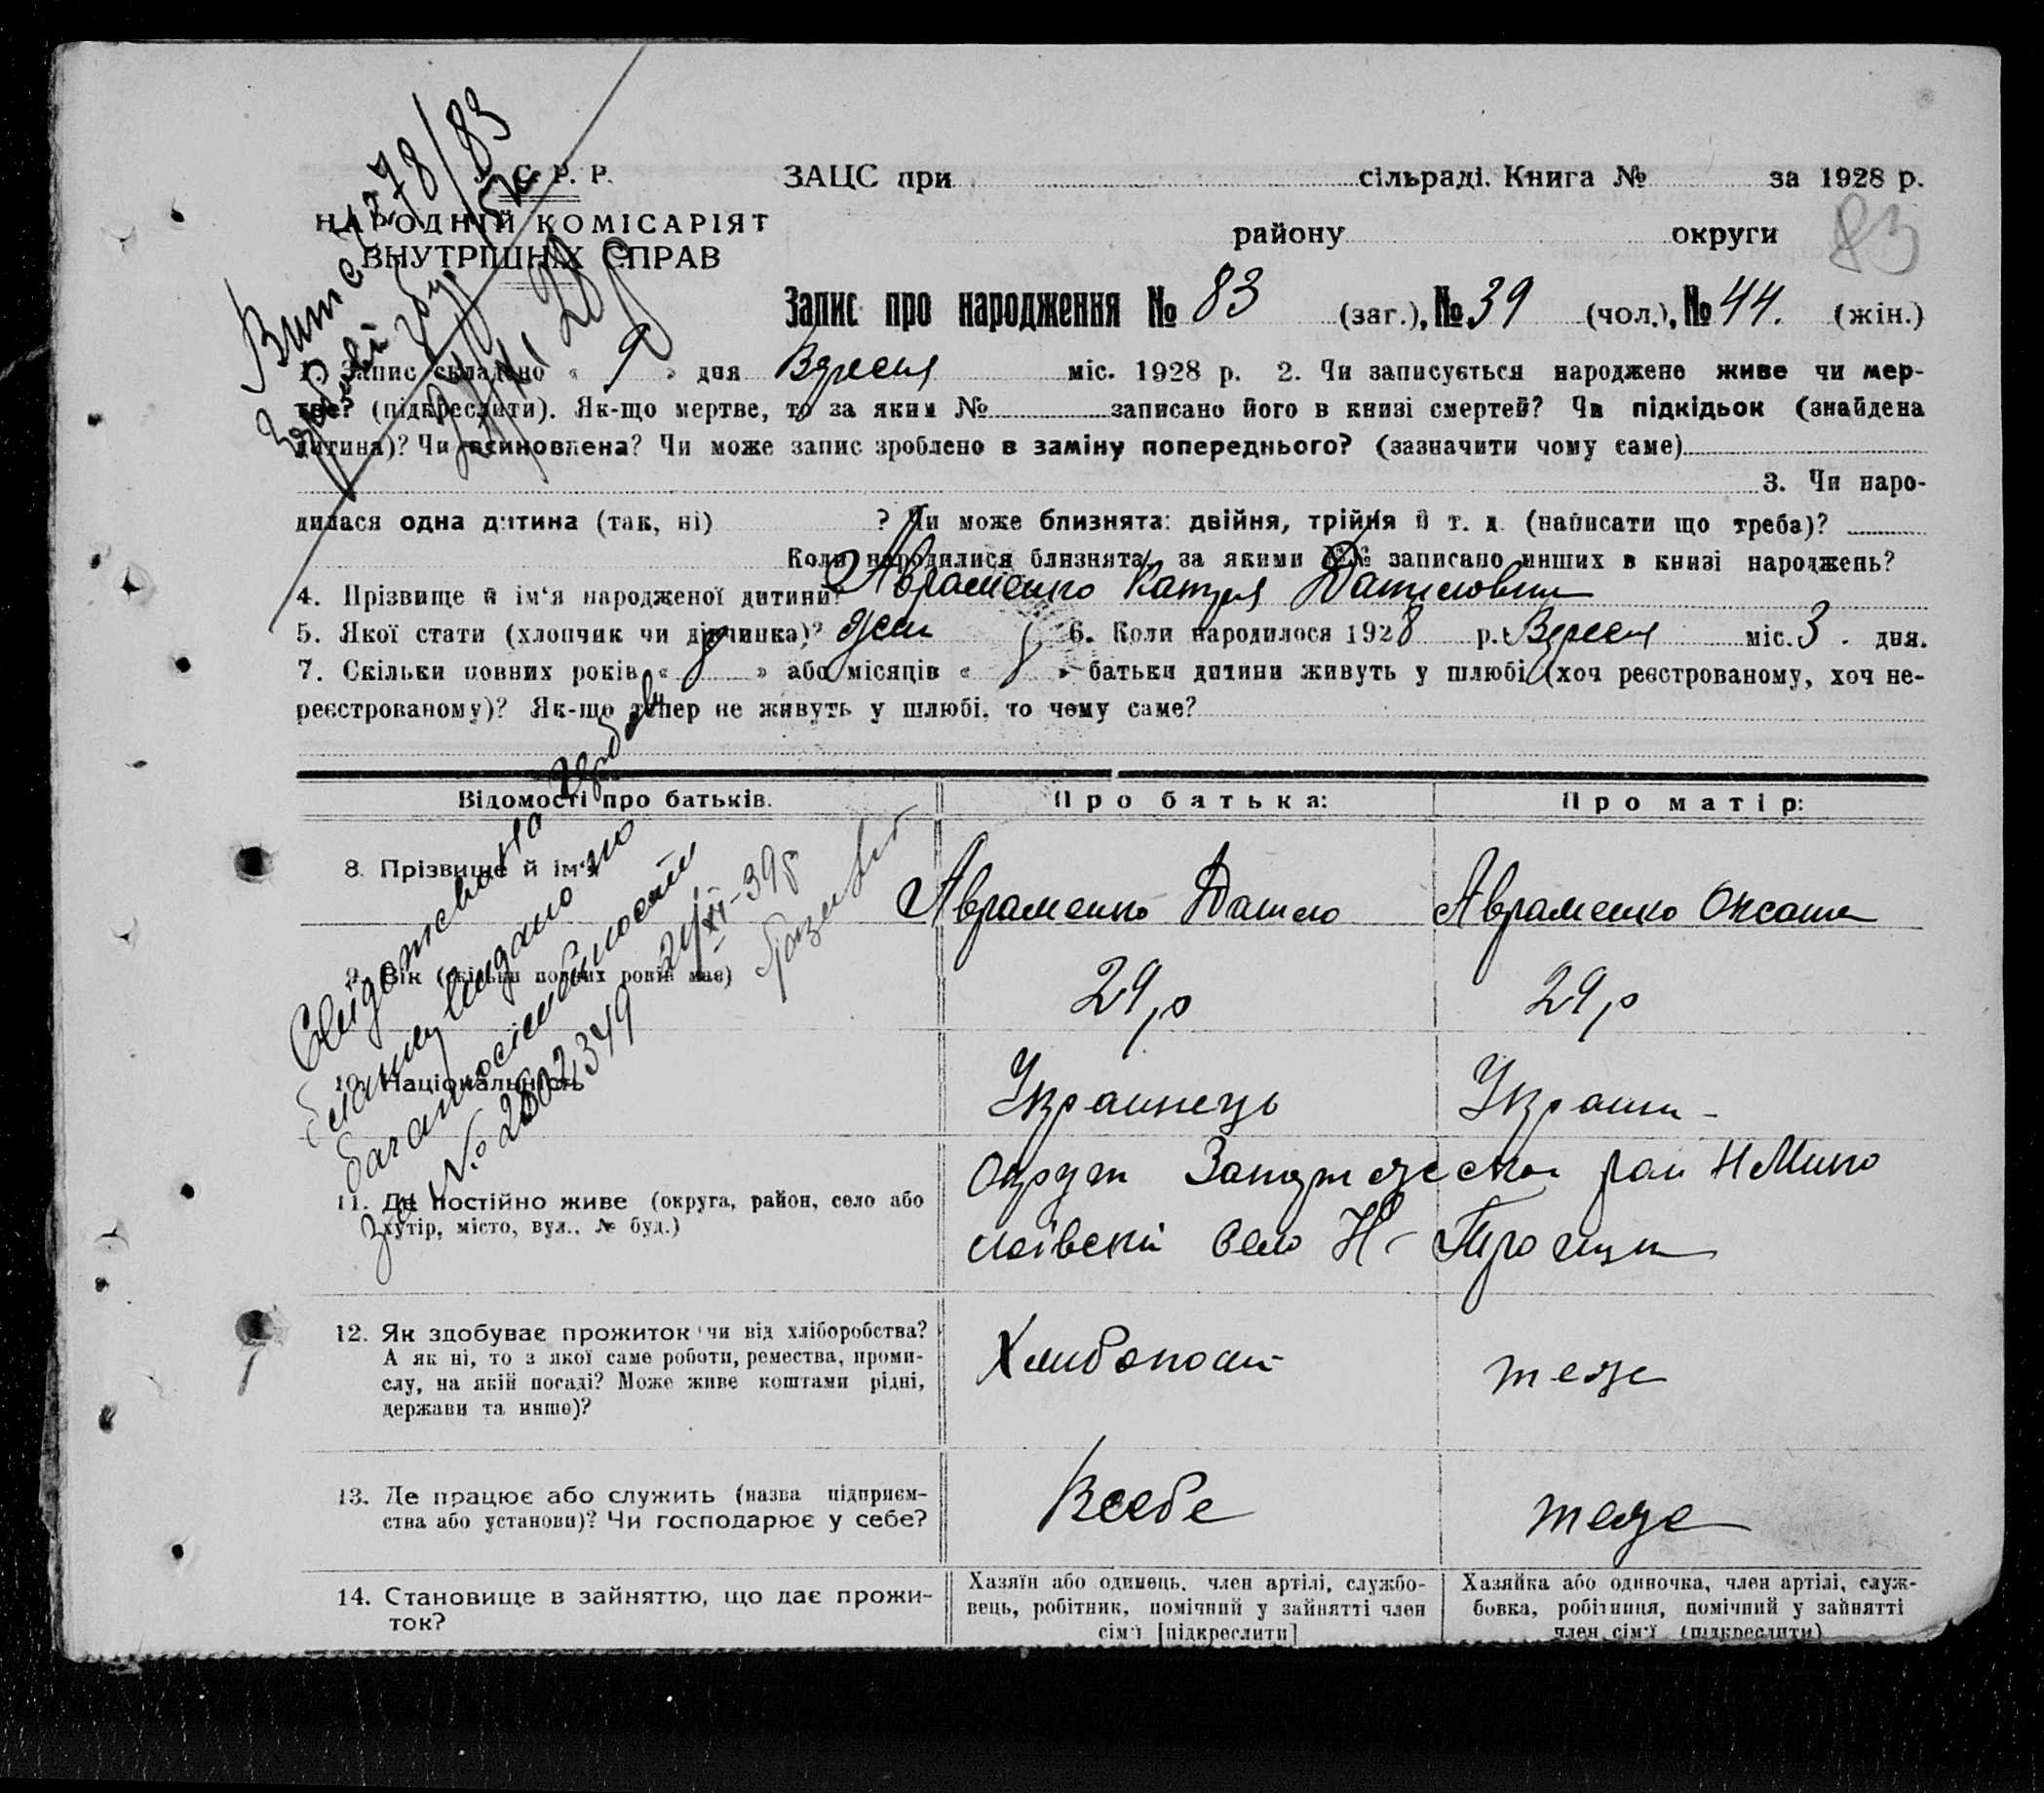 С. Р. Р.
НАРОДНІЙ КОМІСАРІЯТ
ВНУТРІШНІХ СПРАВ
ЗАЦС при сільраді. Книга № за 1928 р.
району округи
83
Запис про народження № 83 (заг.), № 39 (чол.), № 44. (жін.)
1. Запис складено « 9 » дня Вересня міс. 1928 р. 2. Чи записується народжене живе чи мер-
тве? (підкреслити). Як-що мертве, то за яким № записано його в книзі смертей? Чи підкідьок (знайдена
дитина)? Чи всиновлена? Чи може запис зроблено в заміну попереднього? (зазначити чому саме)
3. Чи наро-
дилася одна дитина (так, ні) ? Чи може близнята: двійня, трійня й т. д. (написати що треба)?
Коли народилися близнята, за якими №№ записано инших в книзі народжень?
4. Прізвище й ім‘я народженої дитини? Авраменко Катря Даниловна
5. Якої стати (хлопчик чи дівчинка)? жен 6. Коли народилося 1928 р. Вересня міс. 3. дня.
7. Скільки повних років « » або місяців « » батьки дитини живуть у шлюбі (хоч реєстрованому, хоч не-
реєстрованому)? Як-що тепер не живуть у шлюбі, то чому саме?
Відомості про батьків. Про батька: Про матір:
8. Прізвище й ім‘я Авраменко Данило Авраменко Оксана
9. Вік (скільки повних років має) 29 р 29 р
10. Національність Украинець Украин-
11. Де постійно живе (округа, район, село або
хутір, місто, вул., № буд.)
Округи рай Н Мико
лаївский Село Н-
12. Як здобуває прожиток чи від хліборобства?
А як ні, то з якої саме роботи, ремества, проми-
слу, на якій посаді? Може живе коштами рідні,
держави та инше)?
теже
13. Де працює або служить (назва підприєм-
ства або установи)? Чи господарює у себе?
Всебе теже
14. Становище в зайняттю, що дає прожи-
ток?
Хазяїн або одинець, член артілі, службо-
вець, робітник, помічний у зайнятті член
сім‘ї [підкреслити]
Хазяйка або одиночка, член артілі, служ-
бовка, робітниця, помічний у зайнятті
член сім‘ї (підкреслити)
778/83
багатосімейности
21/XI-39р
за № 2802349